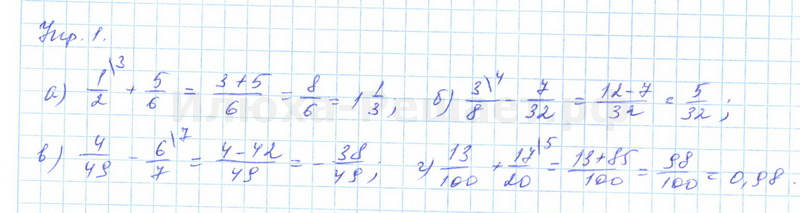 Упр. 1.
а) 1/2 \3 + 5/6 = 3+5/6 = 8/6 = 1 1/3; б) 3/8 \4 - 7/32 = 12-7/32 = 5/32;
в) 4/49 - 6/7 \7 = 4-42/49 = - 38/49; г) 13/100 + 17/20 \5 = 13+85/100 = 98/100 = 0,98.